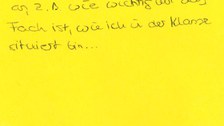 an z.B wie wichtig mir das
Fach ist, wie ich i der Klasse
situiert bin...